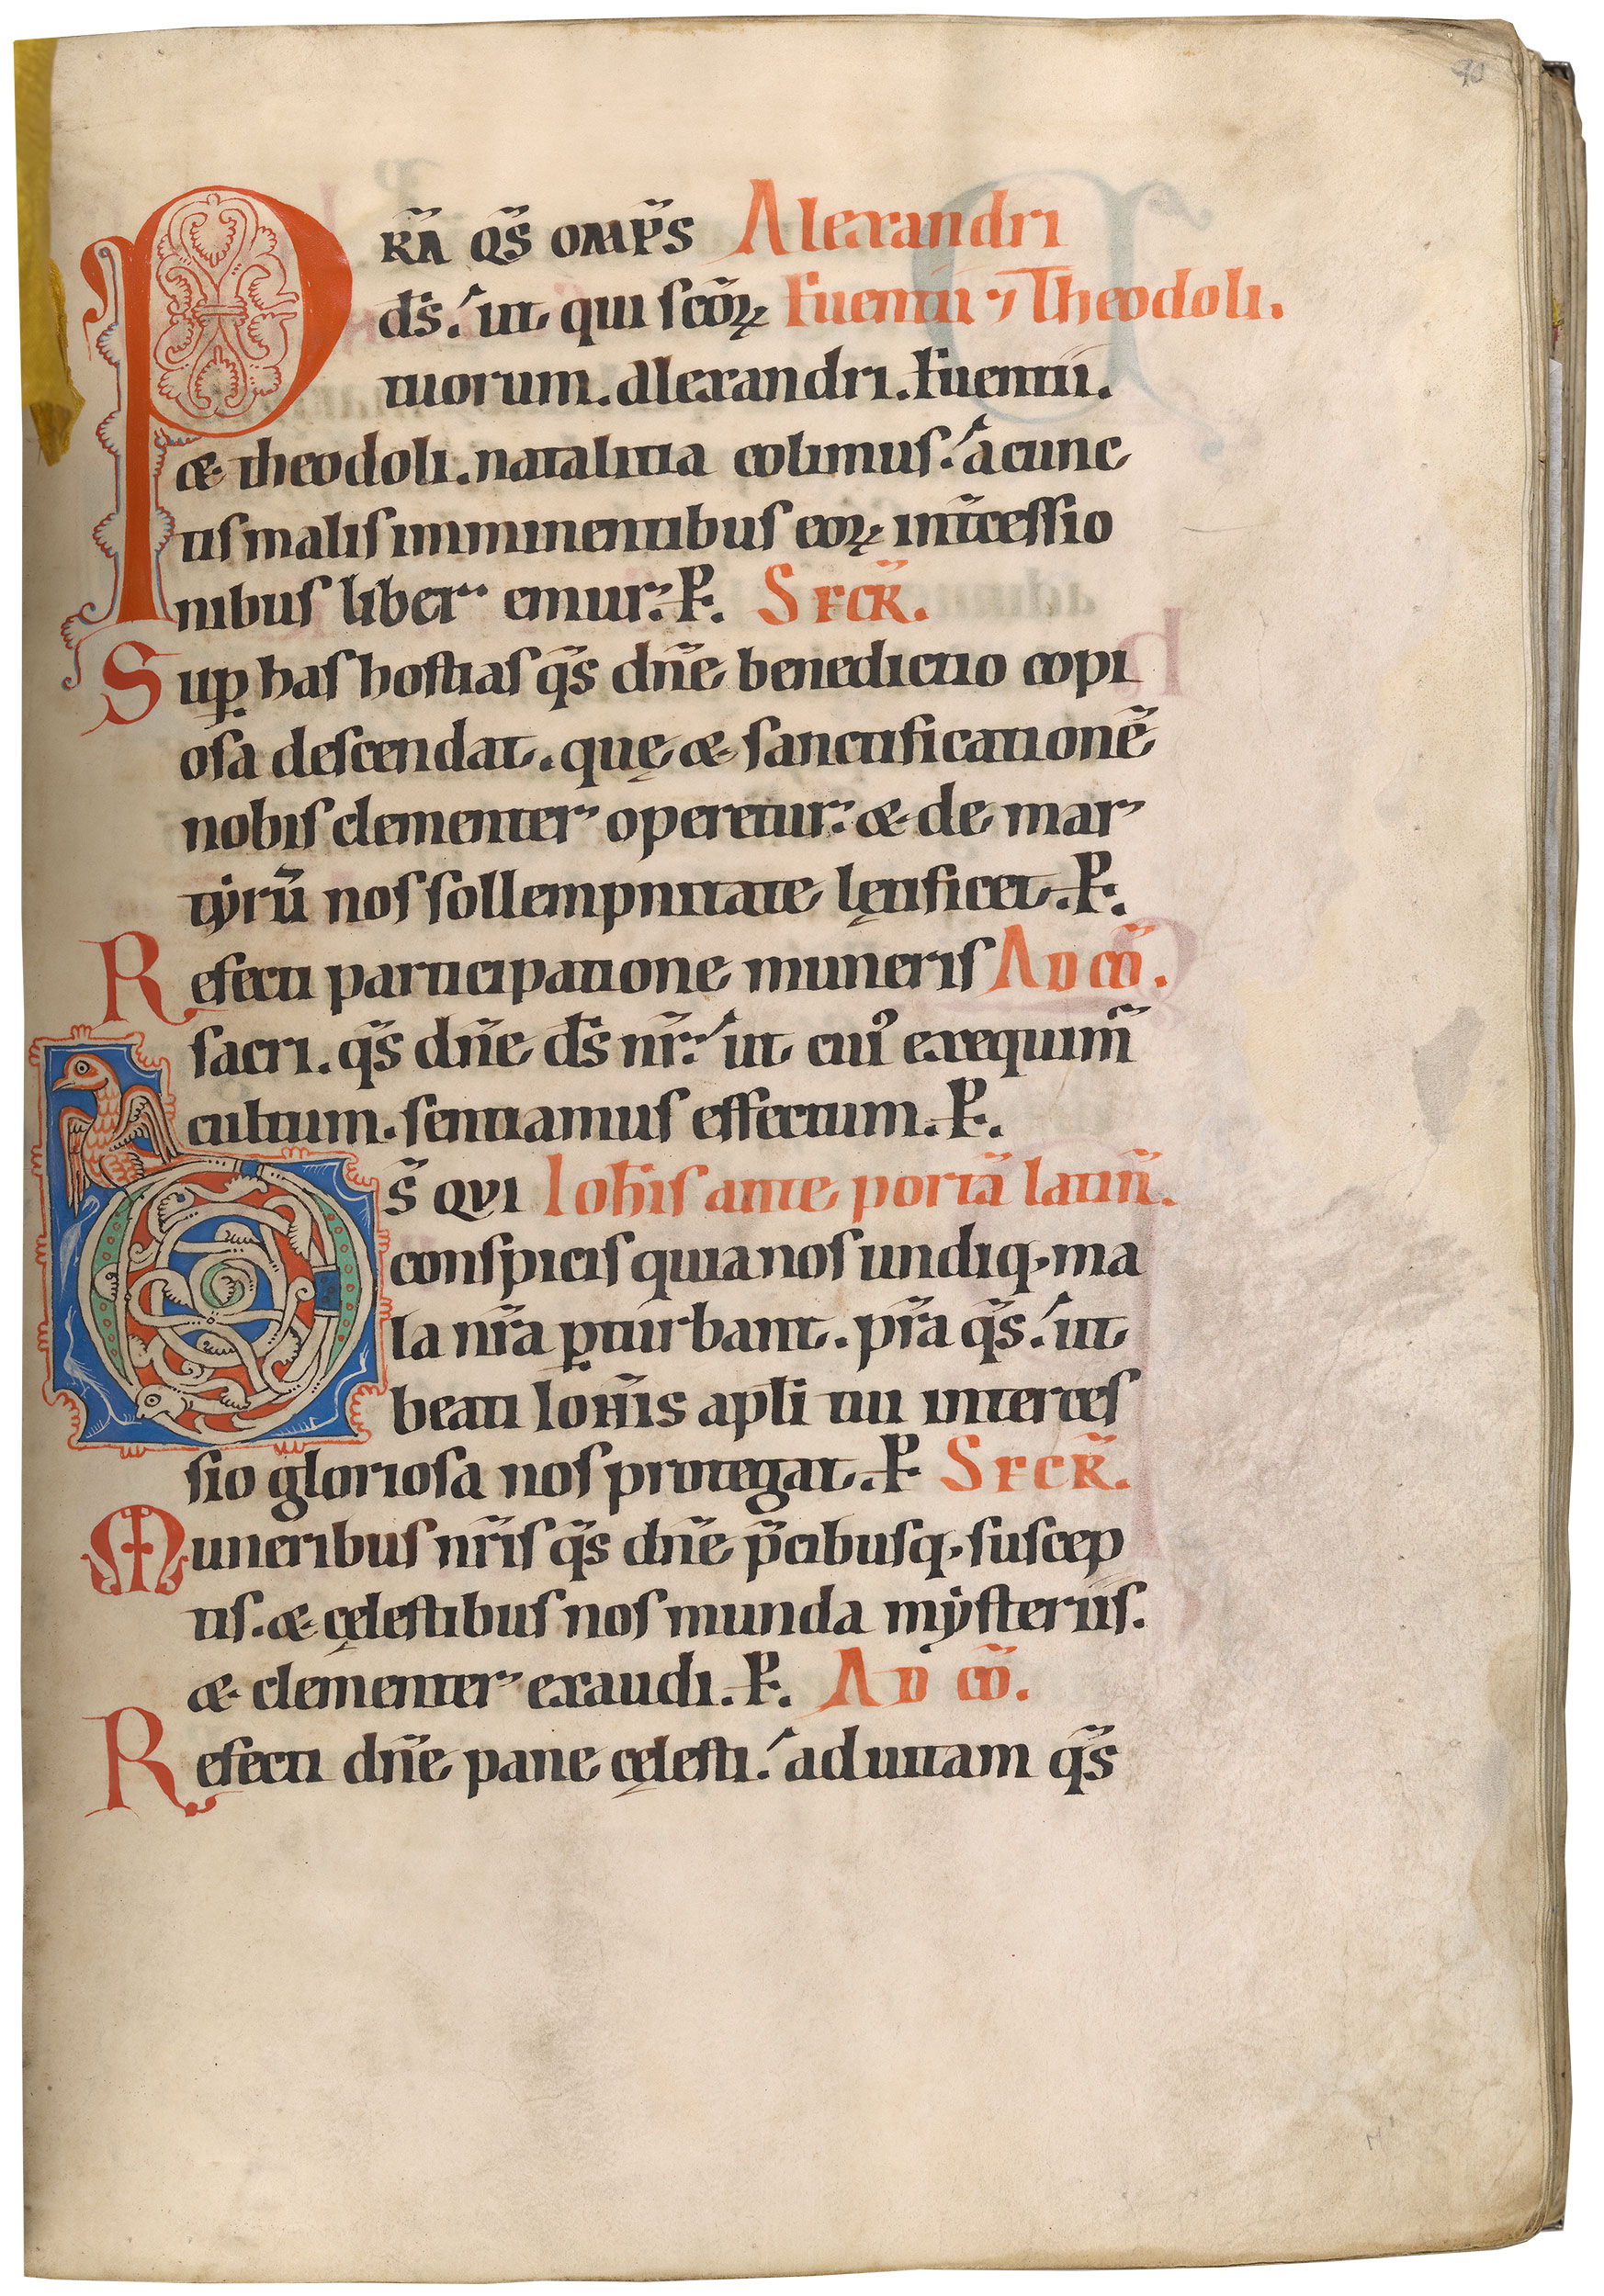 40
PRÆ̃ Q̃S OMP̃S Alexandri
d̃s. ut qui scõꝝ Euentii ⁊ Theodoli.
tuorum. alexandri. Euentii.
& theodoli. natalitia colimus. a cunc
tis malis imminentibus eoꝝ int̃cessio
nibus liber emur. P. SECR̃.
Suꝑ has hostias q̃s dñe benedictio copi
osa descendat. quę & sanctificationẽ
nobis clementer operetur. & de mar
tyrũ nos sollempnitate lętificet. P.
Refecti participatione muneris AD CÕ.
sacri. q̃s dñe d̃s nr̃. ut cuiꝰ exequim̃
cultum. sentiamus effectum. P.
D̃S QVI Ioh̃is ante portã latiñ.
conspicis quia nos undiq; ma
la nr̃a ꝑturbant. pr̃a q̃s. ut
beati IOH̃IS apl̃i tui interces
sio gloriosa nos protegat. P SECR̃.
Muneribus nr̃is q̃s dñe p̃cibusq; suscep
tis. & cęlestibus nos munda mysteriis.
& clementer exaudi. P. AD CÕ.
Refecti dñe pane cęlesti. ad uitam q̃s